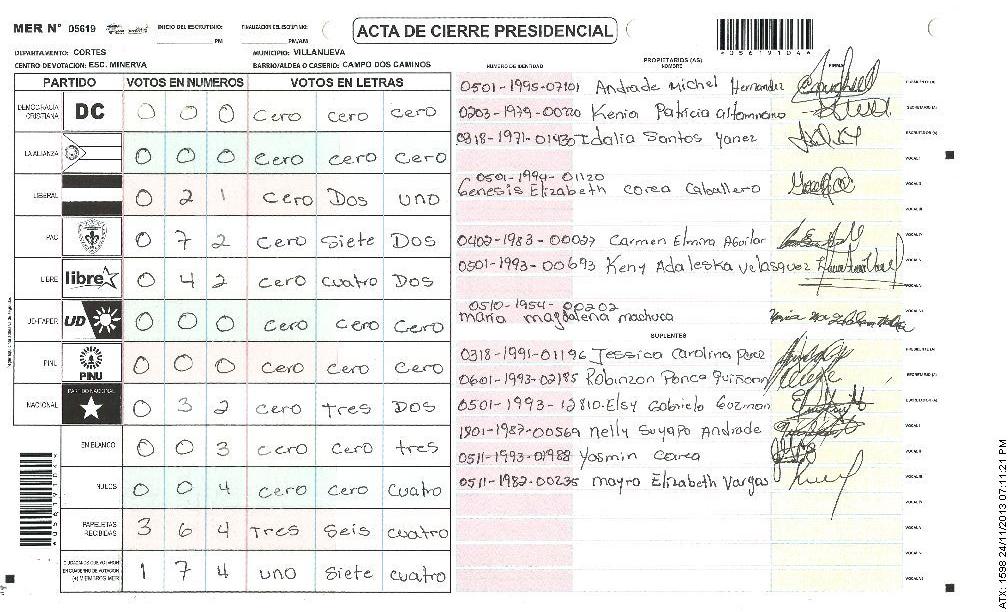 MER N° 05619
INICIO DEL ESCRUTINIO: PM
FINALIZACION DEL ESCRUTINIO: PM/AM
ACTA DE CIERRE PRESIDENCIAL
DEPARTAMENTO: CORTES
MUNICIPIO: VILLANUEVA
CENTRO DE VOTACION: ESC. MINERVA
BARRIO/ALDEA O CASERIO: CAMPO DOS CAMINOS
PARTIDO VOTOS EN NUMEROS VOTOS EN LETRAS
DEMOCRACIA CRISTIANA DC 0 0 0 cero cero cero
LA ALIANZA 0 0 0 cero cero cero
LIBERAL 0 2 1 cero Dos uno
PAC 0 7 2 cero siete Dos
LIBRE libre 0 4 2 cero cuatro Dos
UD-FAPER UD 0 0 0 cero cero cero
PINU PINU 0 0 0 cero cero cero
NACIONAL PARTIDO NACIONAL 0 3 2 cero tres Dos
EN BLANCO 0 0 3 cero cero tres
NULOS 0 0 4 cero cero cuatro
PAPELETAS RECIBIDAS 3 6 4 Tres Seis cuatro
CIUDADANOS QUE VOTARON EN CUADERNO DE VOTACION (+) MIEMBROS MER 1 7 4 uno siete cuatro
NUMERO DE IDENTIDAD PROPIETARIOS (AS) NOMBRE FIRMA
0501-1995-07101 Andrade Michel Hernandez PRESIDENTE (A)
0203-1979-00220 Kenia Patricia altamirano SECRETARIO (A)
0318-1971-01430 Idalia Santos yanez ESCRUTADOR (A)
VOCAL I
0501-1994-01120
Genesis Elizabeth corea Caballero VOCAL II
VOCAL III
0402-1983-00027 Carmen Elmira Aguilar VOCAL IV
0501-1993-00693 Keny Adaleska velasquez VOCAL V
0510-1954-00202
maria magdalena machuca
SUPLENTES
0318-1991-01196 Jessica Carolina Perez PRESIDENTE (A)
0601-1993-02185 Robinzon Ponce SECRETARIO (A)
0501-1993-12810 Elsy Gabriela Guzman ESCRUTADOR (A)
1801-1987-00569 nelly Suyapa Andrade VOCAL I
0511-1993-01988 Yasmin Corea VOCAL II
0511-1982-00235 mayra Elizabeth Vargas VOCAL III
VOCAL IV
VOCAL V
ATX: 1598 24/11/2013 07:11:21 PM